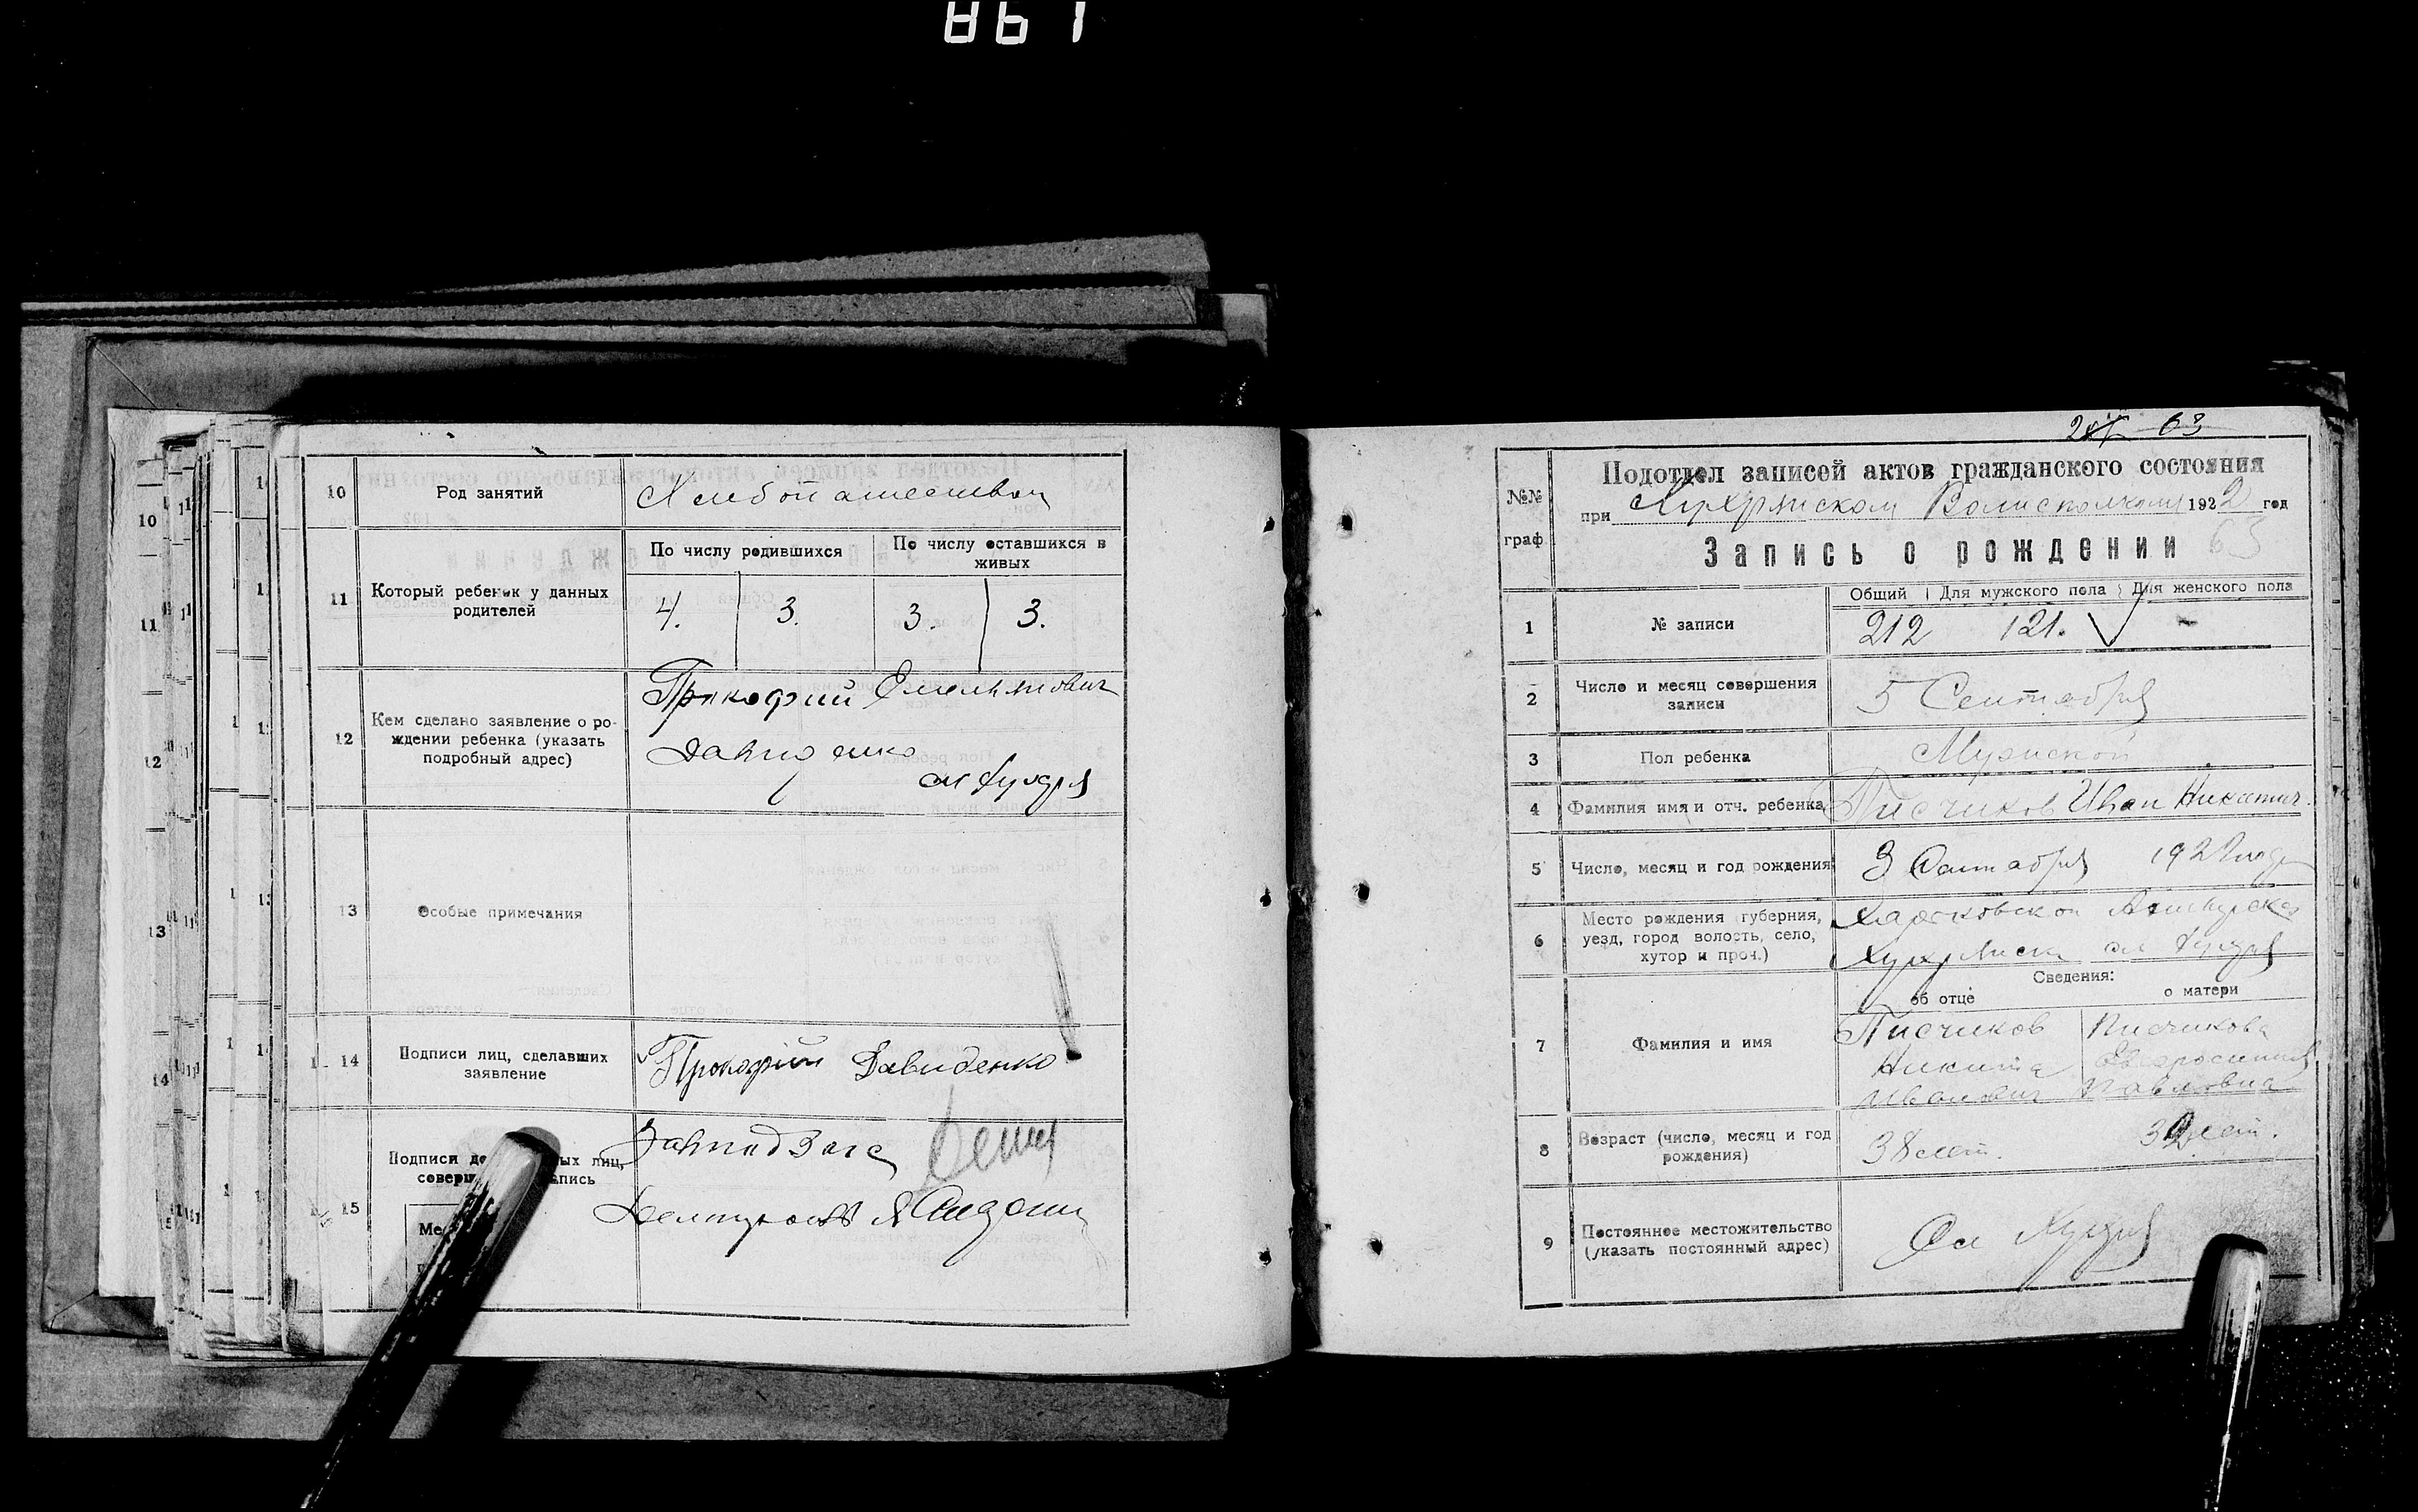 861
10 Род занятий Хлебопашеством
11 Который ребенок у данных родителей
По числу родившихся
По числу оставшихся в живых
4. 3. 3. 3.
12 Кем сделано заявление о ро-
ждении ребенка (указать
подробный адрес)
Прокофий Емельянович
Давиденко
сл Хухря
13 Особые примечания
14 Подписи лиц, сделавших
заявление
Прокофий Давиденко
15 Подписи
Завподзагс
212 63
№№
граф.
Подотдел записей актов гражданского состояния
при Хухрянском Волисполкоме 1922 год
Запись о рождении 63
Общий Для мужского пола Для женского пола
1 № записи 212 121. -
2 Число и месяц совершения
записи
5 Сентября
3 Пол ребенка Мужской
4 Фамилия имя и отч. ребенка Писчиков Иван Никитич.
5 Число, месяц и год рождения 3 Сентября 1922 года
6 Место рождения губерния,
уезд, город волость, село,
хутор и проч.)
Харьковской Ахтырска
Хухрянск сл Хухря
Сведения:
об отце о матери
7 Фамилия и имя
Писчиков Писчикова
Никита Евфросиния
Иванович Павловна
8 Возраст (число, месяц и год
рождения)
38 лет. 32 лет.
9 Постоянное местожительство
(указать постоянный адрес)
Сл Хухря